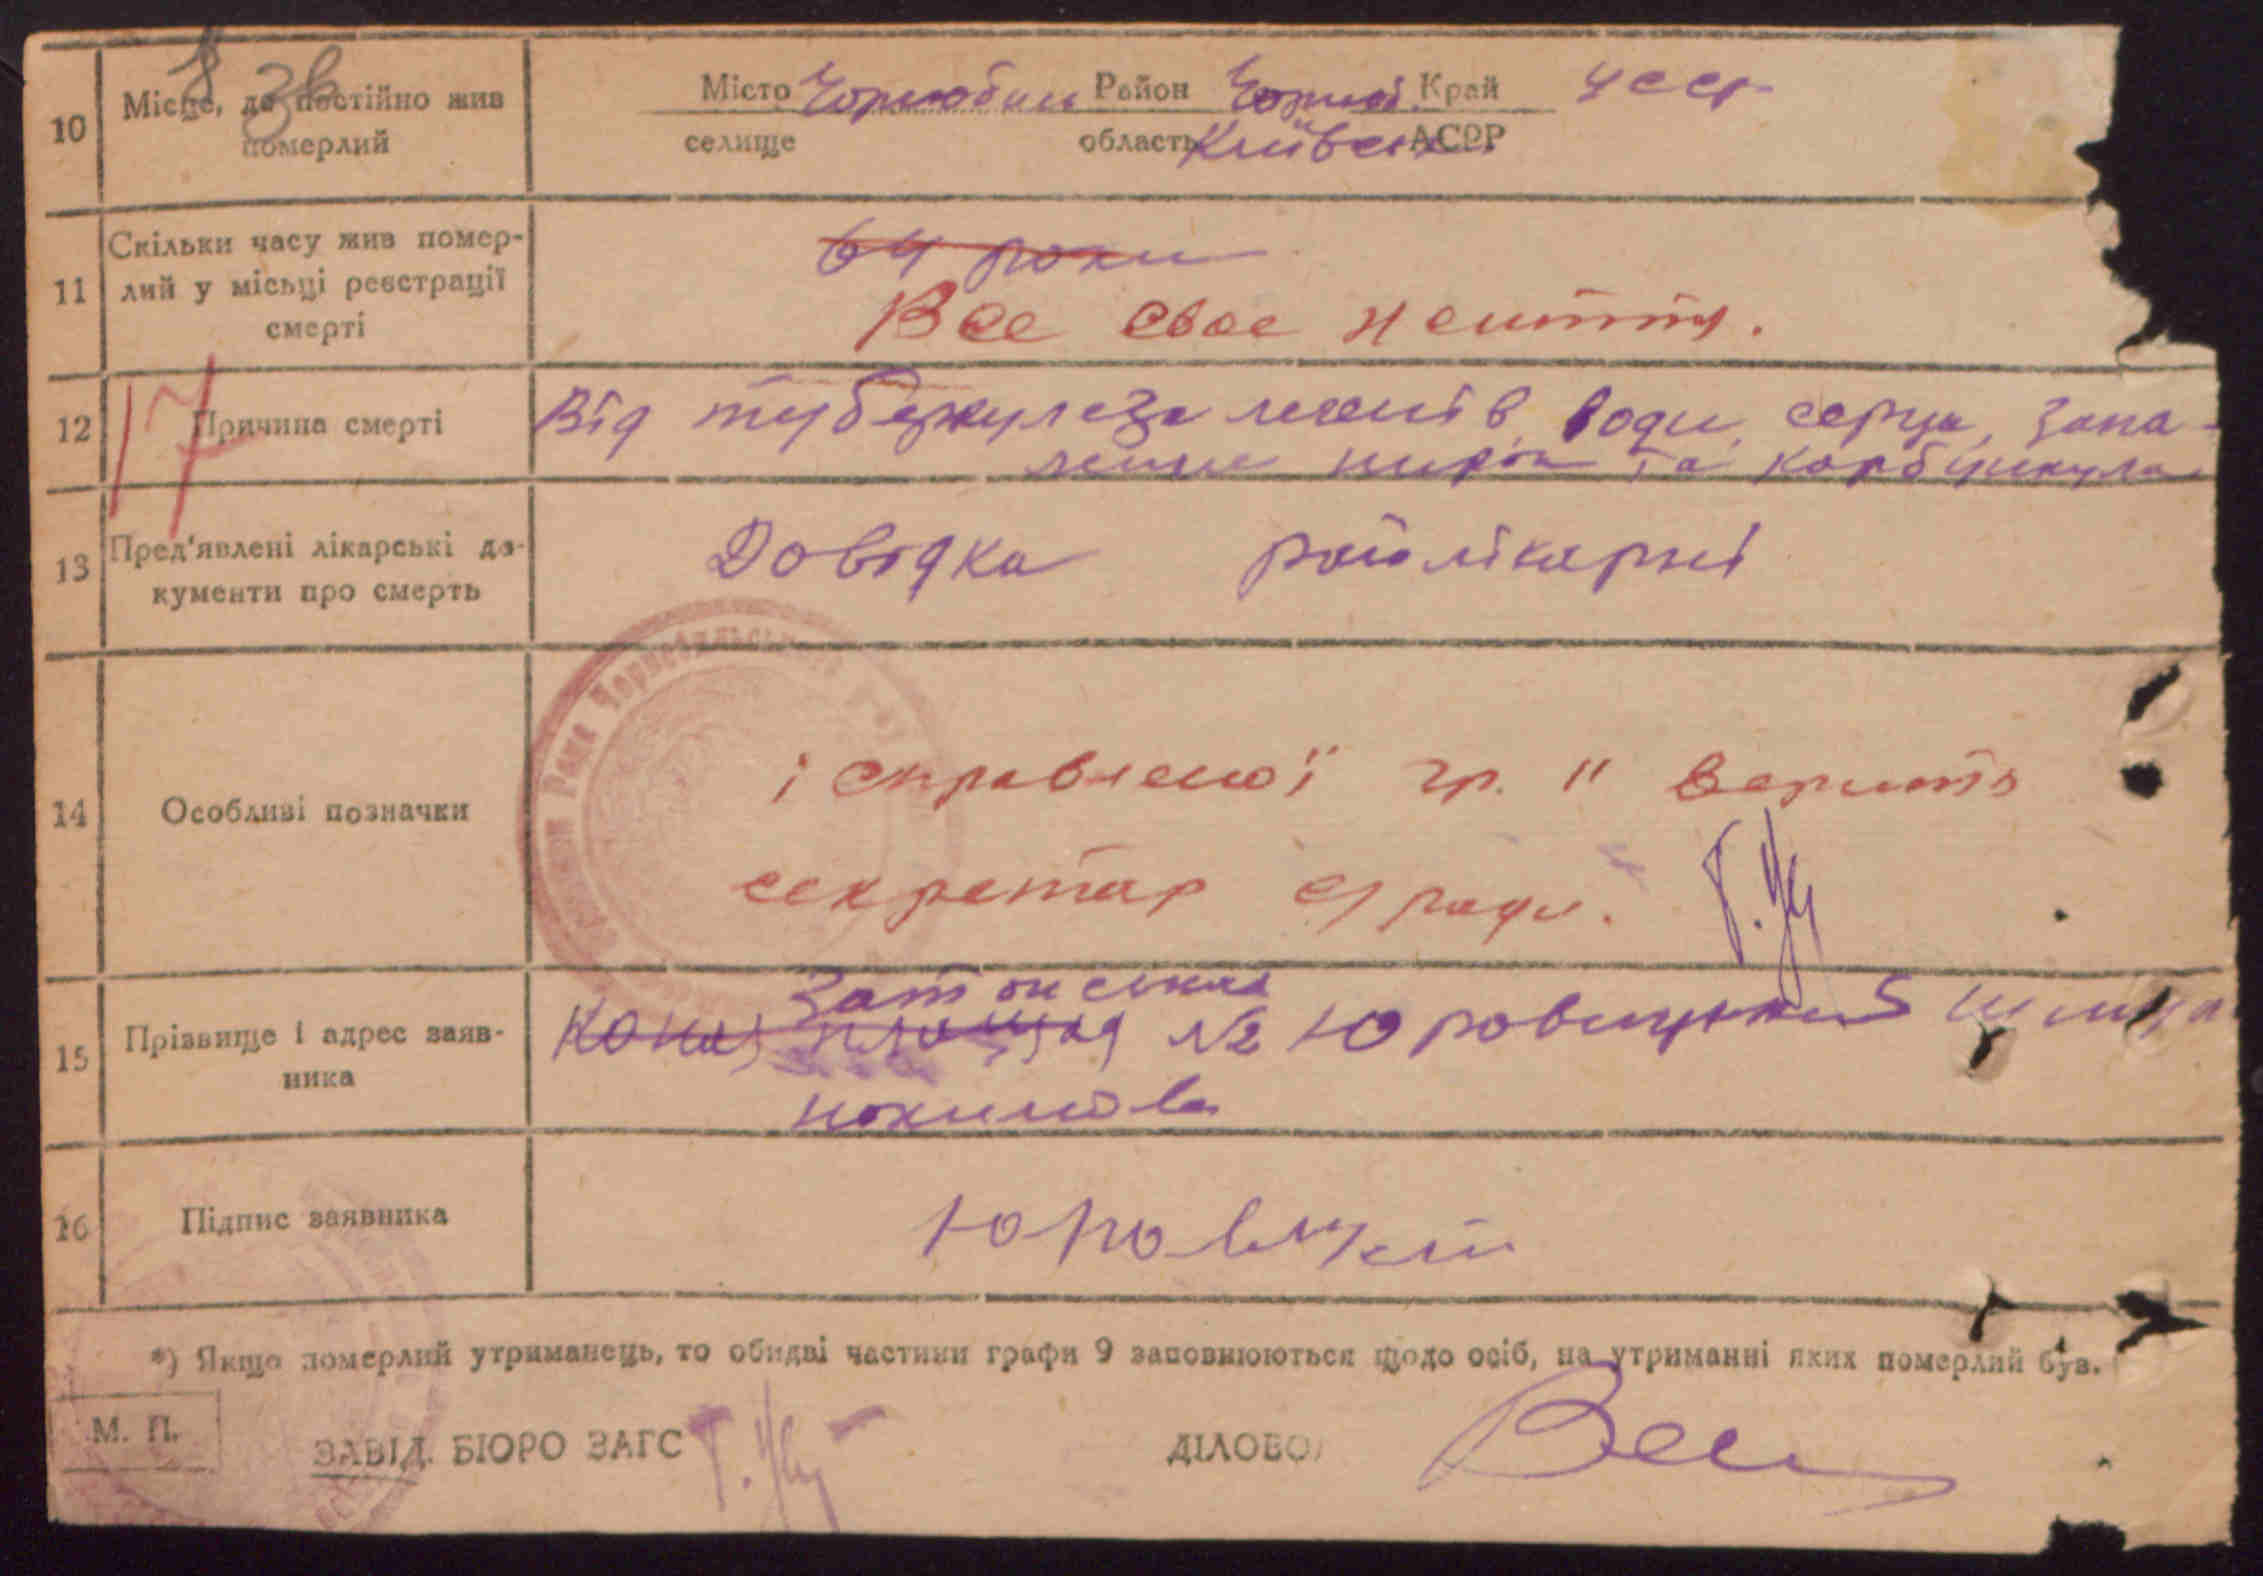 10
Місце, де постійно жив
померлий
Місто Чорнобиль Район Чорноб. Край УССР
селище область Київськ. АСРР
11
Скільки часу жив помер-
лий у місьці реєстрації
смерті
64 роки
Все своє життя.
17
12
Причина смерті
Від туберкулеза легенів, води, серця, запа-
лення нирок та карбункула
13
Пред'явлені лікарські до-
кументи про смерть
Довідка райлікарні
14
Особливі позначки
і справленої гр. 11 верить
секретар с/ради.
15
Прізвище і адрес заяв-
ника
№2 Юровицький
16
Підпис заявника
*) Якщо померлий утриманець, то обидві частини графи 9 заповнюються щодо осіб, на утриманні яких померлий був.
М. П.
ЗАВІД. БЮРО ЗАГС
ДІЛОВОД